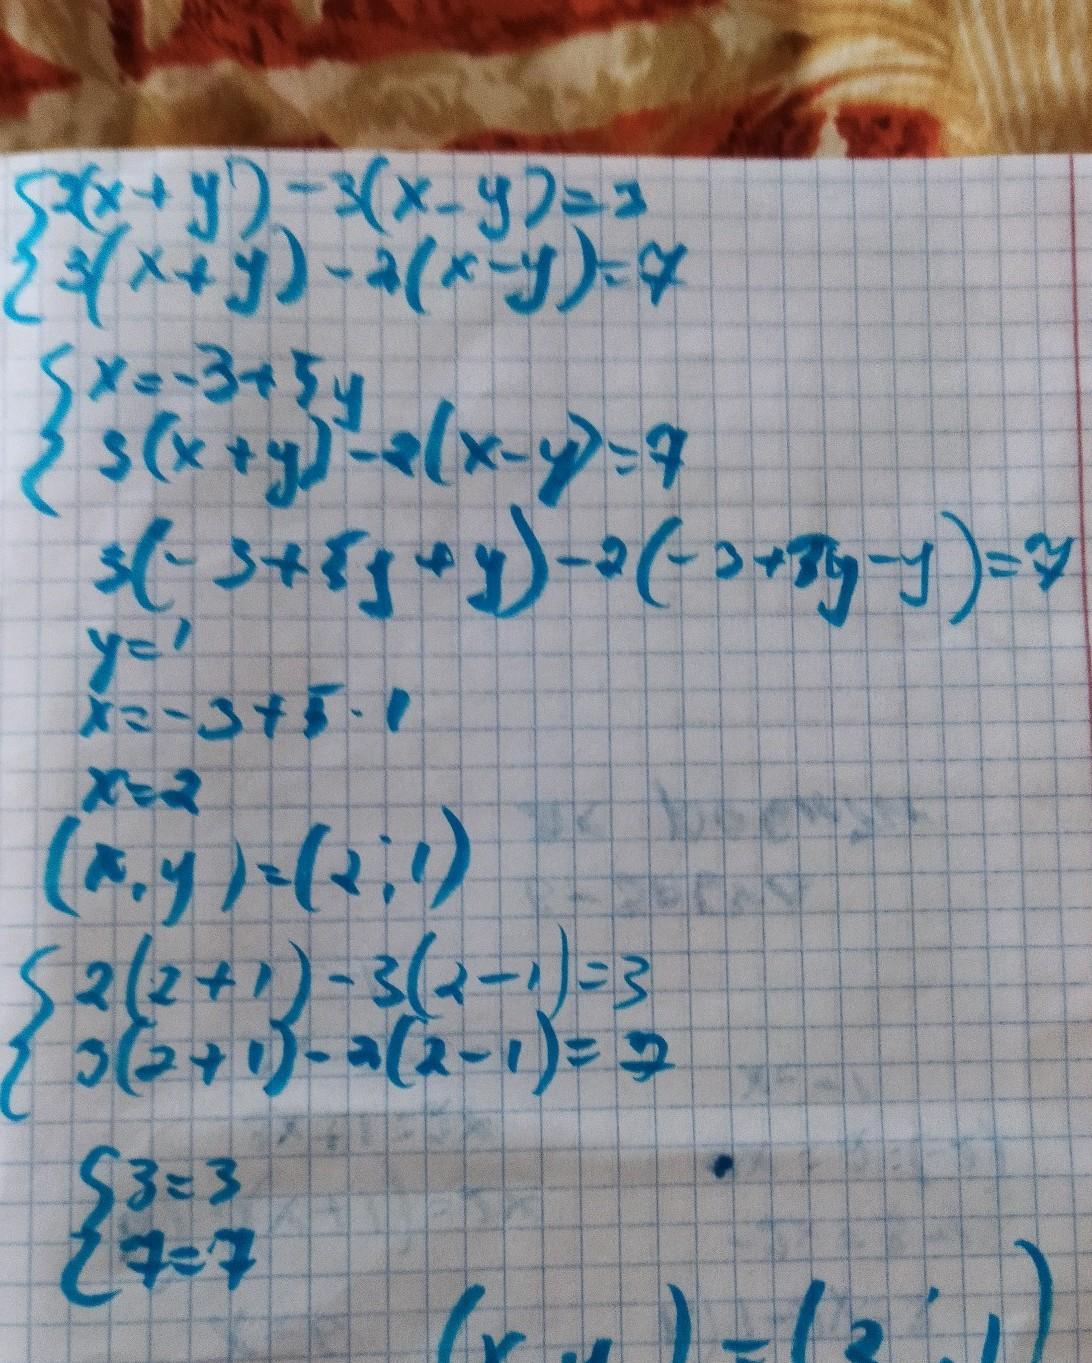 {2(x+y)-3(x-y)=3
{3(x+y)-2(x-y)=7
{x=-3+5y
{3(x+y)-2(x-y)=7
3(-3+5y+y)-2(-3+5y-y)=7
y=1
x=-3+5·1
x=2
(x,y)=(2;1)
{2(2+1)-3(2-1)=3
{3(2+1)-2(2-1)=7
{3=3
{7=7
(x,y)=(2;1)